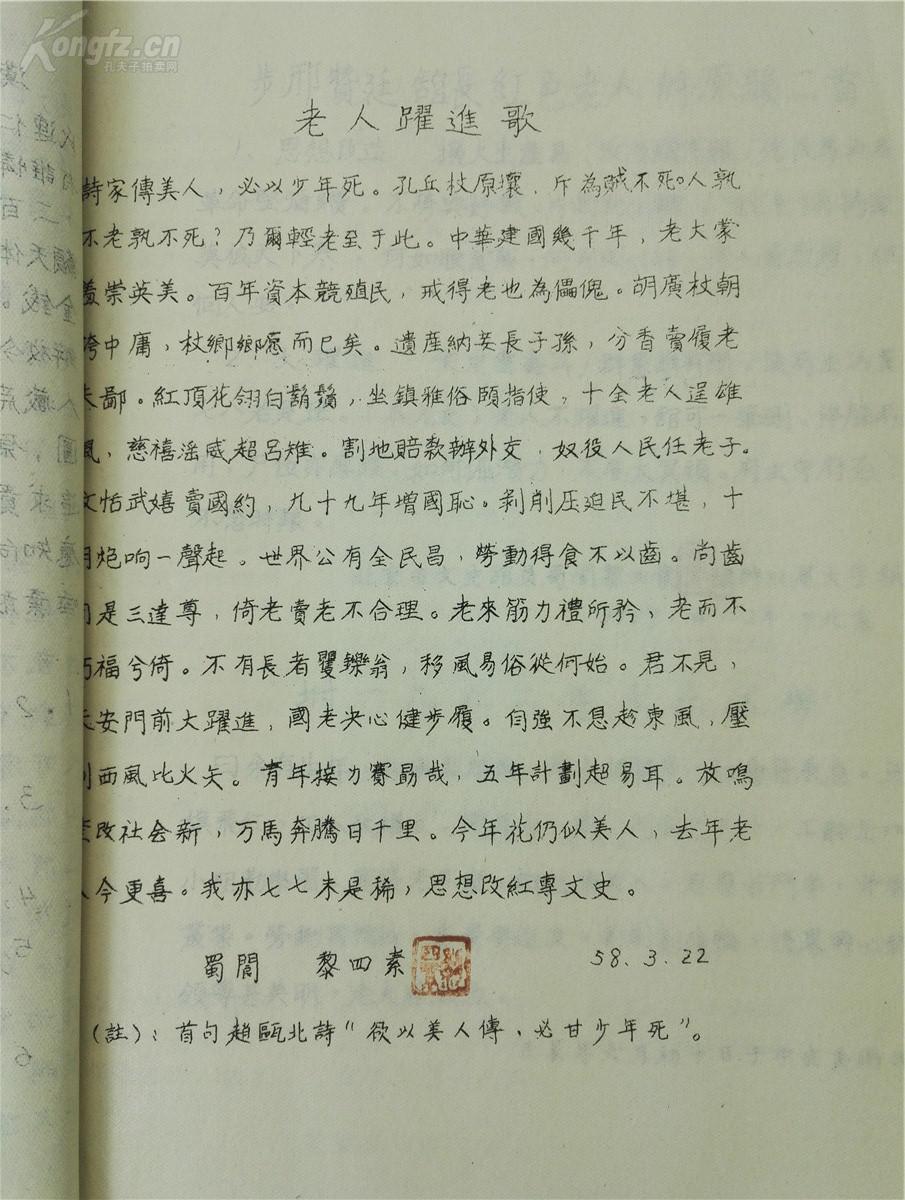 Kongfz.cn
孔夫子拍卖网
老人躍進歌
詩家傳美人，必以少年死。孔丘杖原壤，斥為賊不死。人孰
不老孰不死？乃爾輕老至于此。中華建國幾千年，老大蒙
羞崇英美。百年資本競殖民，戒得老也為儡傀。胡廣杖朝
誇中庸，杖鄉鄉愿而已矣。遺産納妾長子孫，分香賣履老
夫鄙。紅頂花翎白鬍鬚，坐鎮雅俗頤指使，十全老人逞雄
風，慈禧淫威超呂雉。割地賠款辦外交，奴役人民任老子。
文恬武嬉賣國約，九十九年增國恥。剝削压迫民不堪，十
月炮响一聲起。世界公有全民昌，勞動得食不以齒。尚齒
同是三達尊，倚老賣老不合理。老來筋力禮所矜，老而不
朽福兮倚。不有長者矍鑠翁，移風易俗從何始。君不見，
天安門前大躍進，國老决心健步履。自強不息趁東風，壓
倒西風比火矢。青年接力賽勗哉，五年計劃超易耳。放鳴
整改社会新，万馬奔騰日千里。今年花仍似美人，去年老
人今更喜。我亦七七未是稀，思想改紅專文史。
蜀閬 黎四素 58.3.22
（註）：首句趙甌北詩“欲以美人傳，必甘少年死”。